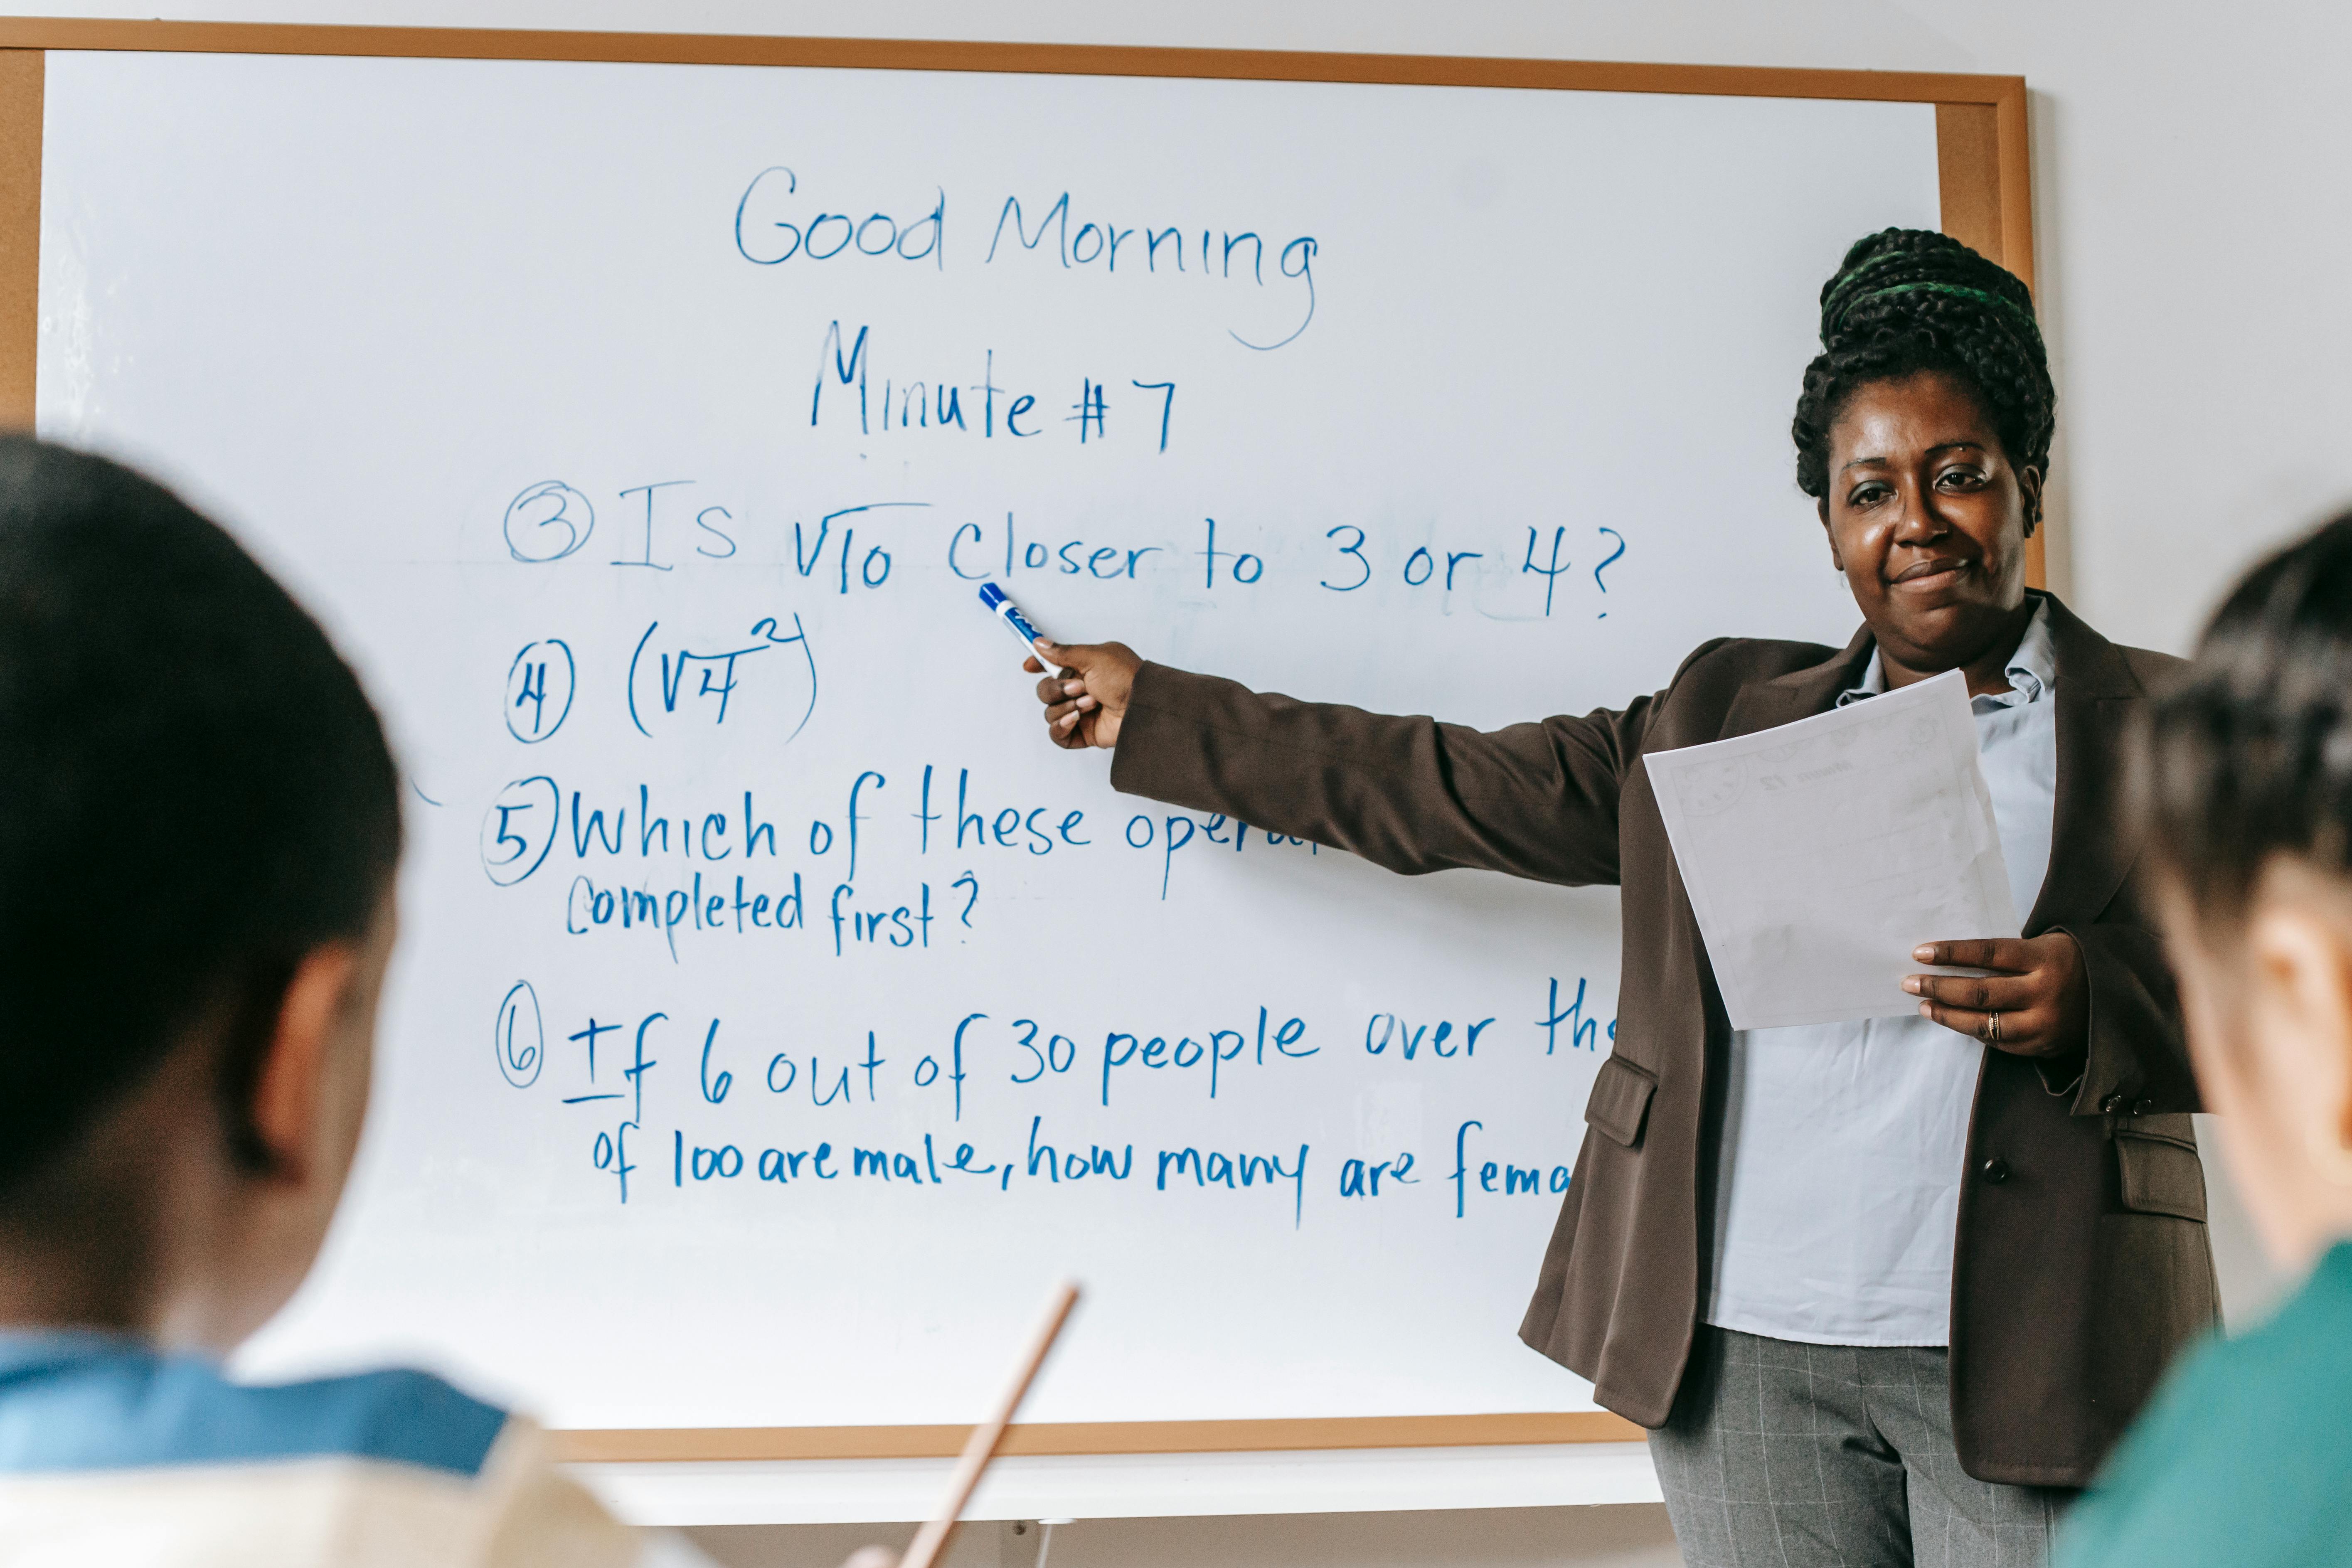 Good Morning
Minute # 7
③ Is √10 closer to 3 or 4?
④ (√4²)
⑤ Which of these
completed first?
⑥ If 6 out of 30 people over
of 100 are male, how many are